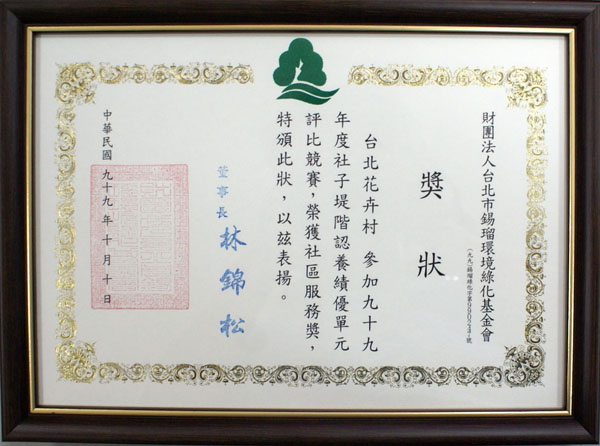 財團法人台北市錫瑠環境綠化基金會
獎狀
台北花卉村 參加九十九
年度社子堤階認養績優單元
評比競賽，榮獲社區服務獎，
特頒此狀，以茲表揚。
董事長 林錦松
中華民國 九十九年 十月 十日